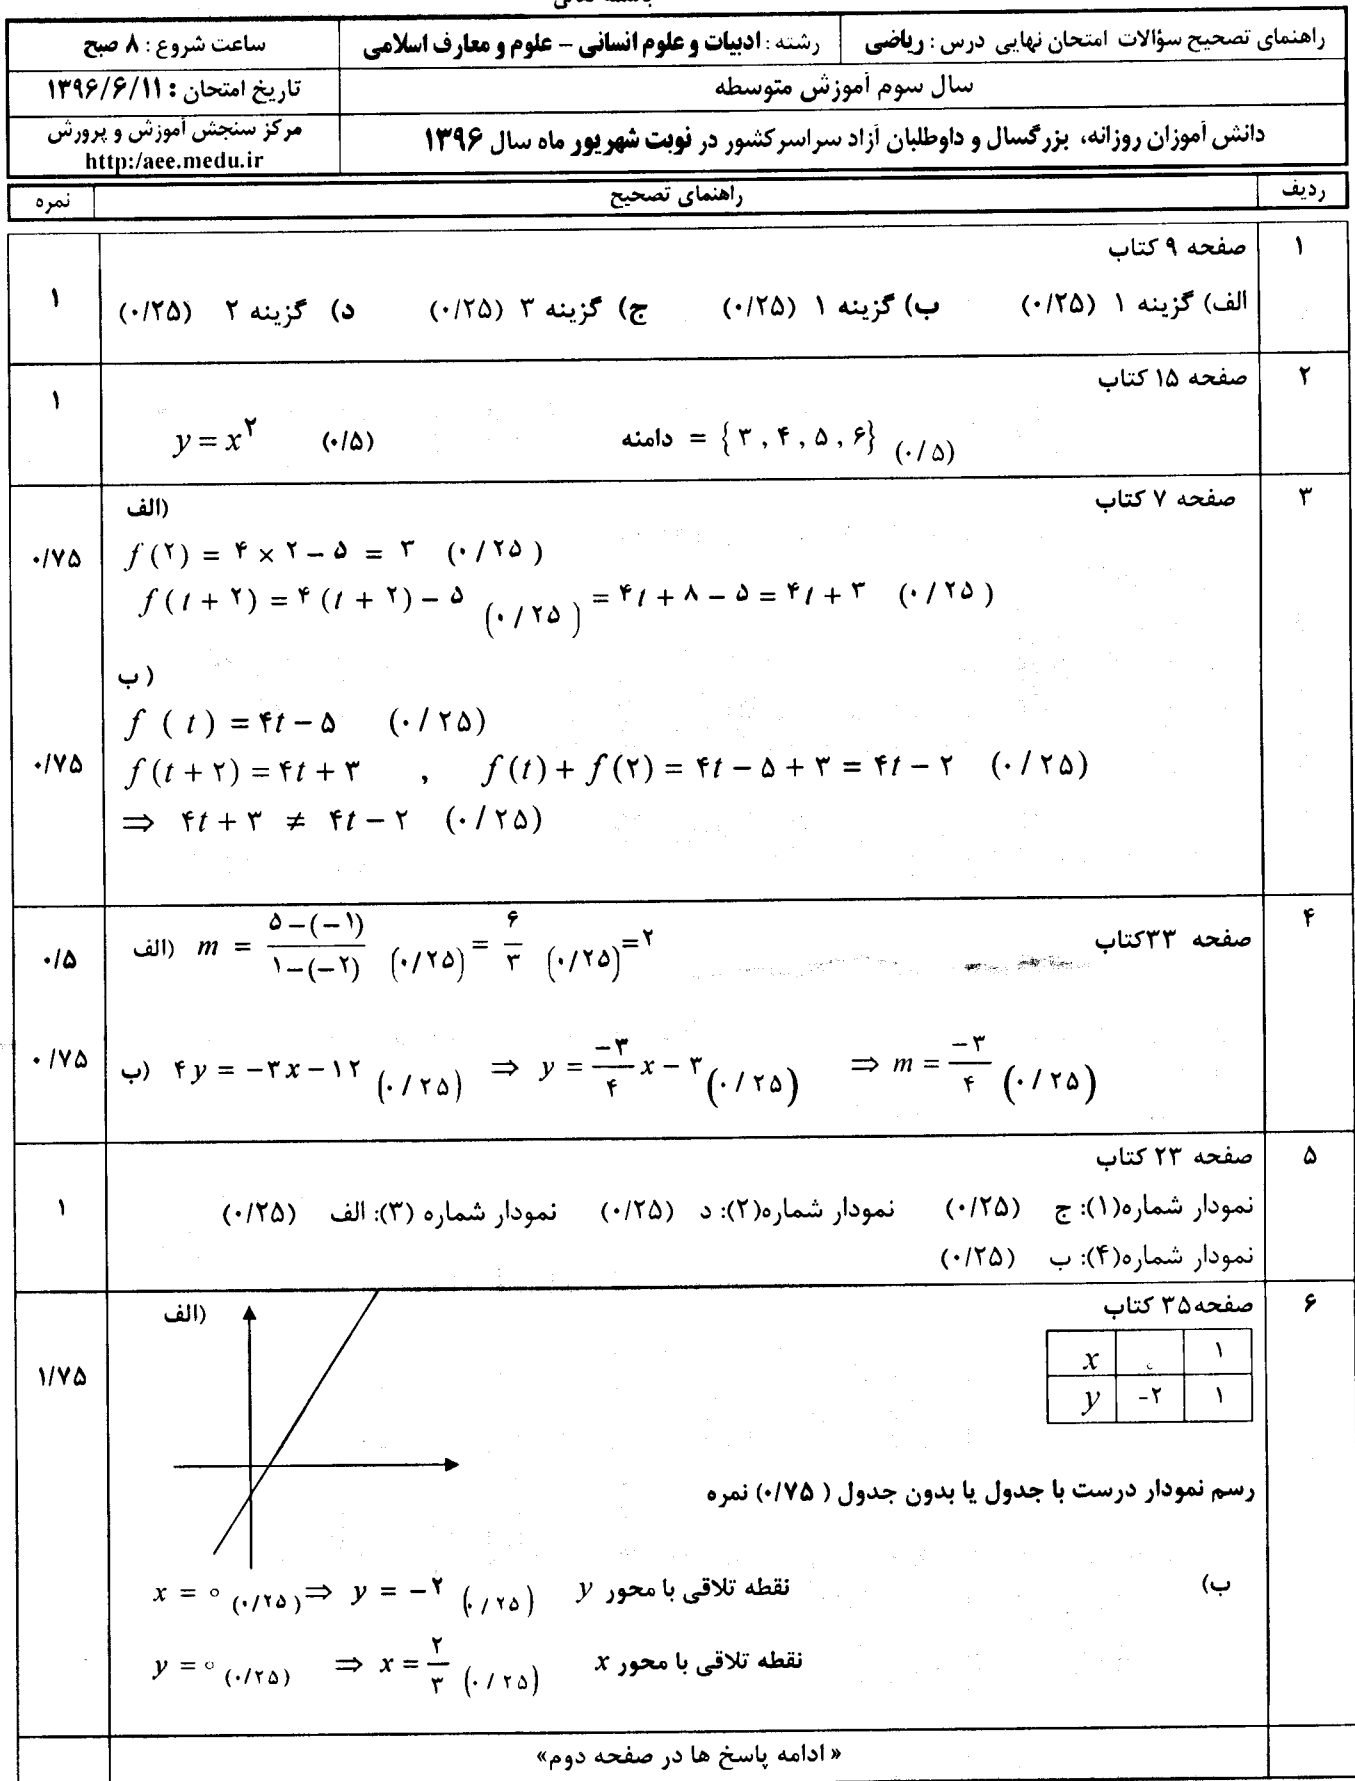 باسمه تعالی
راهنمای تصحیح سؤالات امتحان نهایی درس : ریاضی
رشته : ادبیات و علوم انسانی – علوم و معارف اسلامی
ساعت شروع : ۸ صبح
سال سوم آموزش متوسطه
تاریخ امتحان : ۱۳۹۶/۶/۱۱
دانش آموزان روزانه، بزرگسال و داوطلبان آزاد سراسر کشور در نوبت شهریور ماه سال ۱۳۹۶
مرکز سنجش آموزش و پرورش
http:/aee.medu.ir
ردیف راهنمای تصحیح نمره
۱ صفحه ۹ کتاب
الف) گزینه ۱ (۰/۲۵) ب) گزینه ۱ (۰/۲۵) ج) گزینه ۳ (۰/۲۵) د) گزینه ۲ (۰/۲۵) ۱
۲ صفحه ۱۵ کتاب ۱
y = x^۲ (۰/۵) دامنه = {۳ , ۴ , ۵ , ۶} (۰/۵)
۳ صفحه ۷ کتاب الف)
f (۲) = ۴ × ۲ – ۵ = ۳ (۰/۲۵) ۰/۷۵
f (t + ۲) = ۴ (t + ۲) – ۵ (۰/۲۵) = ۴t + ۸ – ۵ = ۴t + ۳ (۰/۲۵)
ب)
f (t) = ۴t – ۵ (۰/۲۵)
f (t + ۲) = ۴t + ۳ , f (t) + f (۲) = ۴t – ۵ + ۳ = ۴t – ۲ (۰/۲۵) ۰/۷۵
⇒ ۴t + ۳ ≠ ۴t – ۲ (۰/۲۵)
۴ صفحه ۳۳کتاب
الف) m = (۵–(–۱))/(۱–(–۲)) (۰/۲۵) = ۶/۳ (۰/۲۵) = ۲ ۰/۵
ب) ۴y = –۳x – ۱۲ (۰/۲۵) ⇒ y = –۳/۴ x – ۳ (۰/۲۵) ⇒ m = –۳/۴ (۰/۲۵) ۰/۷۵
۵ صفحه ۲۳ کتاب
نمودار شماره(۱): ج (۰/۲۵) نمودار شماره(۲): د (۰/۲۵) نمودار شماره (۳): الف (۰/۲۵) ۱
نمودار شماره(۴): ب (۰/۲۵)
۶ صفحه۳۵ کتاب الف)
x ۰ ۱
y -۲ ۱
۱/۷۵
رسم نمودار درست با جدول یا بدون جدول ( ۰/۷۵) نمره
ب) نقطه تلاقی با محور y x = ۰ (۰/۲۵) ⇒ y = –۲ (۰/۲۵)
نقطه تلاقی با محور x y = ۰ (۰/۲۵) ⇒ x = ۲/۳ (۰/۲۵)
« ادامه پاسخ ها در صفحه دوم»